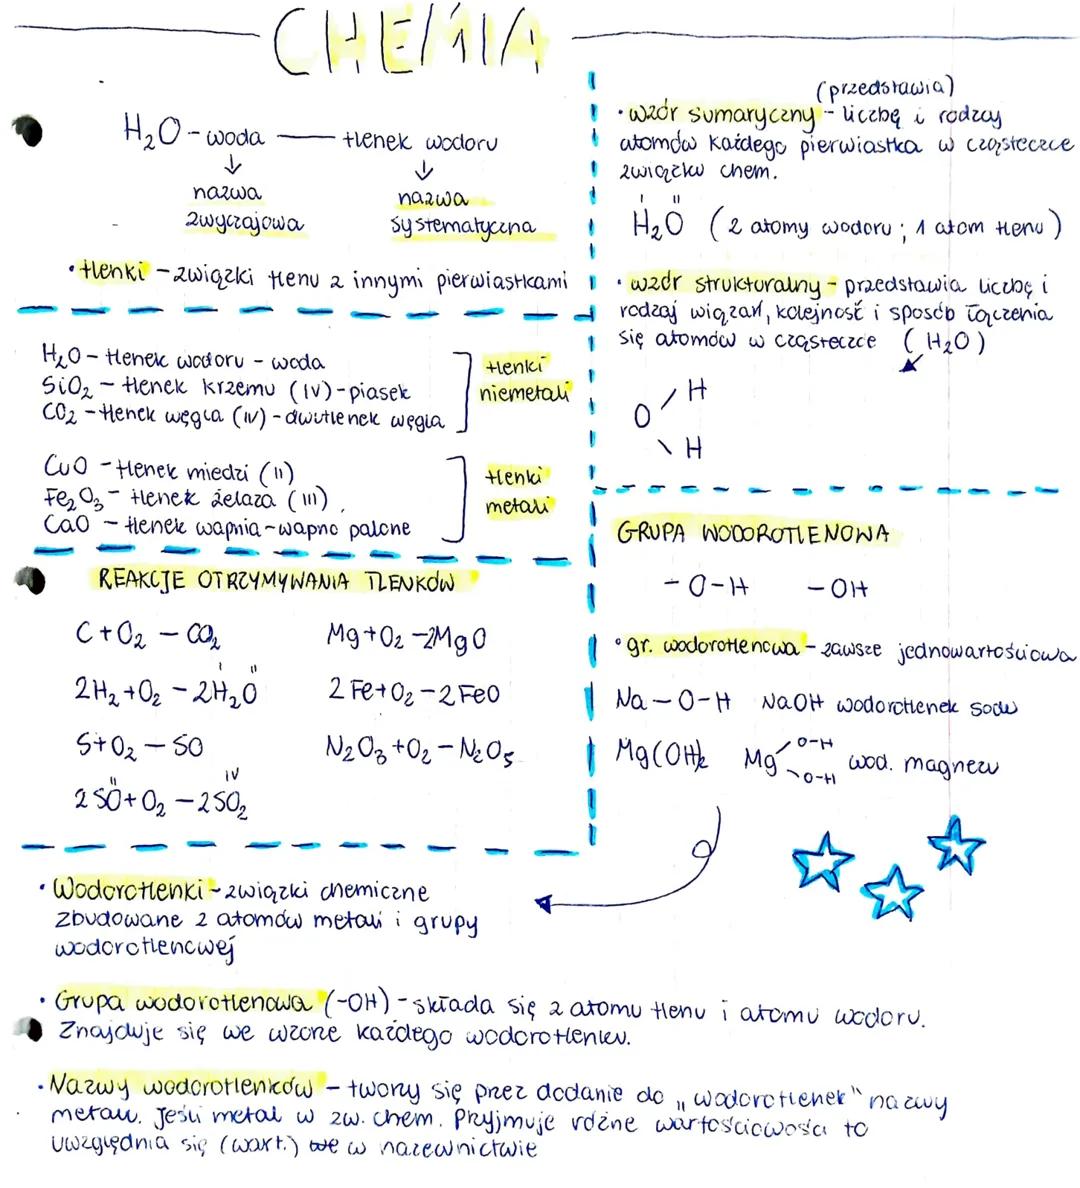 CHEMIA
H₂O - woda — tlenek wodoru
↓ ↓
nazwa zwyczajowa
nazwa systematyczna
• tlenki - związki tlenu z innymi pierwiastkami
H₂O - tlenek wodoru - woda
SiO₂ - tlenek krzemu (IV) - piasek
CO₂ - tlenek węgla (IV) - dwutlenek węgla
tlenki
niemetali
CuO - tlenek miedzi (II)
Fe₂O₃ - tlenek żelaza (III)
CaO - tlenek wapnia - wapno palone
tlenki
metali
REAKCJE OTRZYMYWANIA TLENKÓW
C + O₂ — CO₂
Mg + O₂ — 2MgO
I II
2H₂ + O₂ — 2H₂O
2 Fe + O₂ — 2 FeO
S + O₂ — SO
N₂O₃ + O₂ — N₂O₅
II IV
2 SO + O₂ — 2 SO₂
(przedstawia)
• wzór sumaryczny - liczbę i rodzaj
atomów każdego pierwiastka w cząsteczce
związku chem.
I II
H₂O (2 atomy wodoru ; 1 atom tlenu)
• wzór strukturalny - przedstawia liczbę i
rodzaj wiązań, kolejność i sposób łączenia
się atomów w cząsteczce (H₂O)
H
O
H
GRUPA WODOROTLENOWA
- O - H - OH
• gr. wodorotlenowa - zawsze jednowartościowa
Na — O - H NaOH wodorotlenek sodu
Mg(OH)₂ Mg O-H O-H wod. magnezu
• Wodorotlenki - związki chemiczne
zbudowane z atomów metali i grupy
wodorotlenowej
• Grupa wodorotlenowa (-OH) - składa się z atomu tlenu i atomu wodoru.
Znajduje się we wzorze każdego wodorotlenku.
• Nazwy wodorotlenków - tworzy się przez dodanie do „wodorotlenek" nazwy
metalu. Jeśli metal w zw. chem. Przyjmuje różne wartościowości to
uwzględnia się (wart.) w nazewnictwie